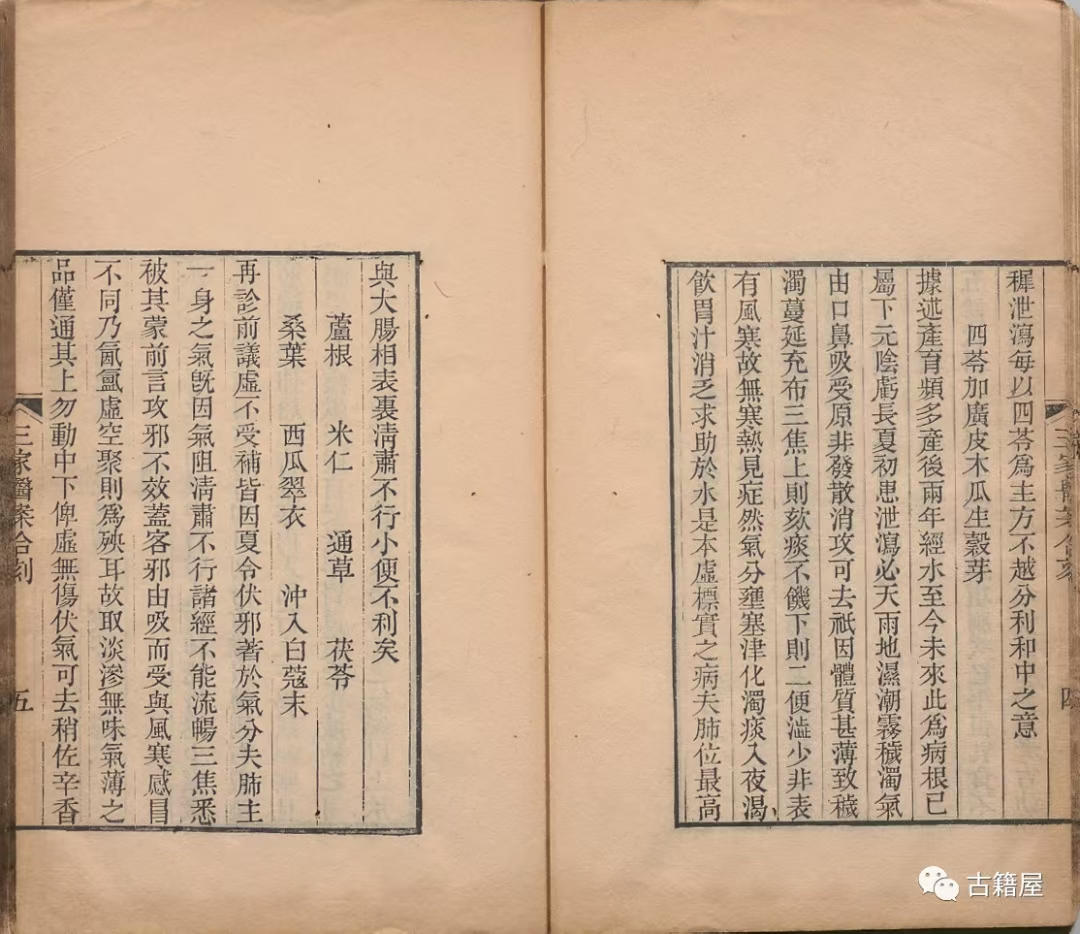 穉泄瀉每以四苓爲主方不越分利和中之意
四苓加廣皮木瓜生穀芽
據述產育頻多產後兩年經水至今未來此爲病根已
屬下元陰虧長夏初患泄瀉必天雨地濕潮霧穢濁氣
由口鼻吸受原非發散消攻可去祇因體質甚薄致穢
濁蔓延充布三焦上則欬痰不饑下則二便澁少非表
有風寒故無寒熱見症然氣分壅塞津化濁痰入夜渴
飲胃汁消乏求助於水是本虛標實之病夫肺位最高
與大腸相表裏淸肅不行小便不利矣
蘆根 米仁 通草 茯苓
桑葉 西瓜翠衣 沖入白蔻末
再診前議虛不受補皆因夏令伏邪著於氣分夫肺主
一身之氣旣因氣阻淸肅不行諸經不能流暢三焦悉
被其蒙前言攻邪不效蓋客邪由吸而受與風寒感冒
不同乃氤氳虛空聚則爲殃耳故取淡滲無味氣薄之
品僅通其上勿動中下俾虛無傷伏氣可去稍佐辛香
三家醫案合刻
五
古籍屋